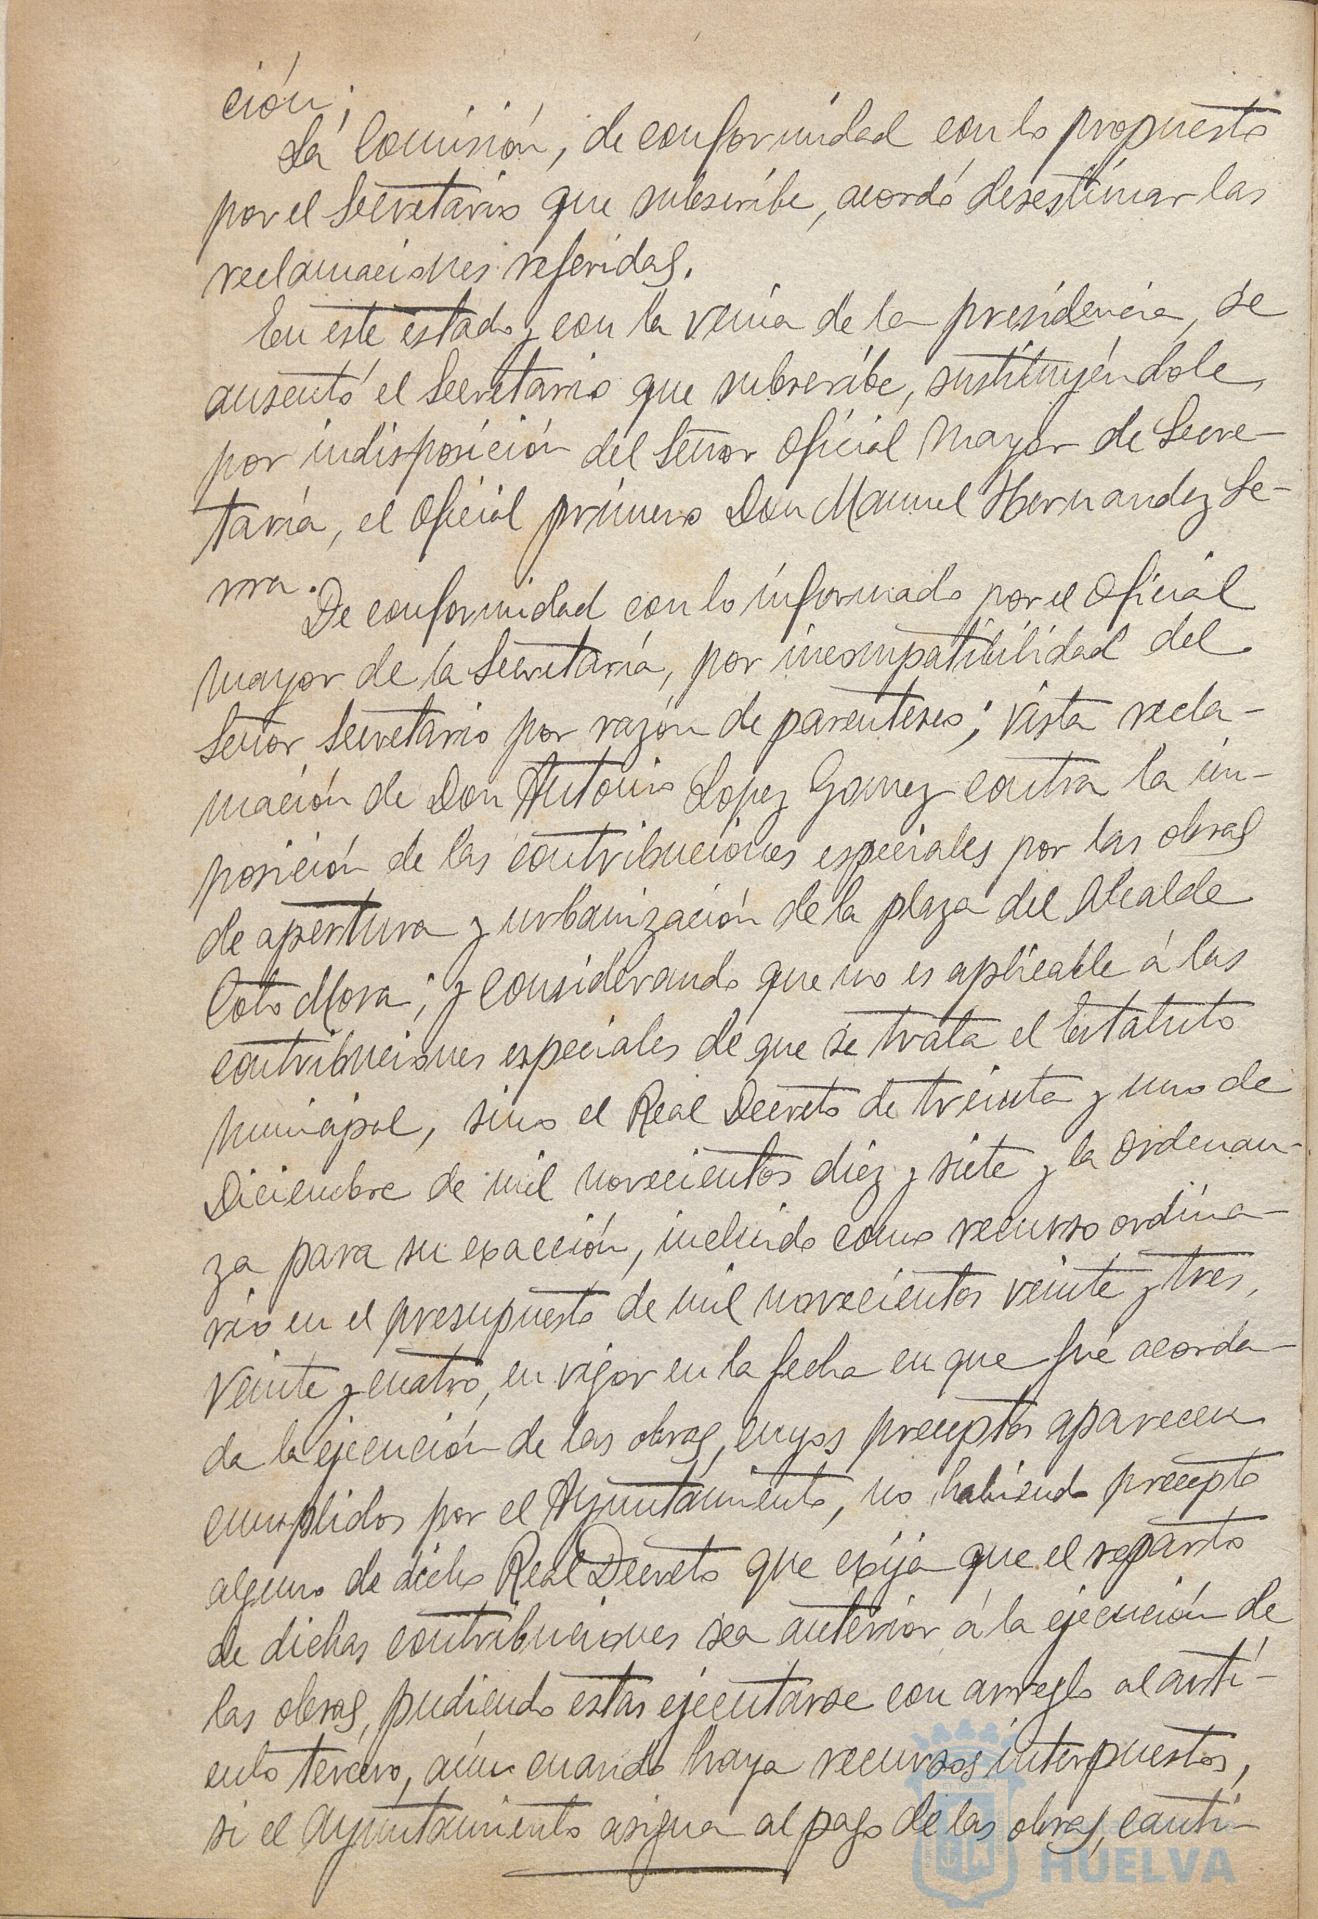 ción;
La Comisión, de conformidad con lo propuesto
por el Secretario que subscribe, acordó desestimar las
reclamaciones referidas.
En este estado y con la venia de la presidencia, se
ausentó el Secretario que subscribe, sustituyéndole,
por indisposición del Señor Oficial Mayor de Secre-
taría, el Oficial primero Don Manuel Hernandez Se-
rra.
De conformidad con lo informado por el Oficial
mayor de la Secretaría, por incompatibilidad del
Señor Secretario por razón de parentesco; vista recla-
mación de Don Antonio Lopez Gomez contra la im-
posición de las contribuciones especiales por las obras
de apertura y urbanización de la plaza del Alcalde
Coto Mora; y considerando que no es aplicable á las
contribuciones especiales de que se trata el Estatuto
municipal, sino el Real Decreto de treinta y uno de
Diciembre de mil novecientos diez y siete y la Ordenan-
za para su exacción, incluido como recurso ordina-
rio en el presupuesto de mil novecientos veinte y tres,
veinte y cuatro, en vigor en la fecha en que fué acorda-
da la ejecución de las obras, cuyos preceptos aparecen
cumplidos por el Ayuntamiento, no habiendo precepto
alguno de dicho Real Decreto que exija que el reparto
de dichas contribuciones sea anterior á la ejecución de
las obras, pudiendo estas ejecutarse con arreglo al artí-
culo tercero, aún cuando haya recursos interpuestos,
si el Ayuntamiento asigna al pago de las obras, canti-
HUELVA